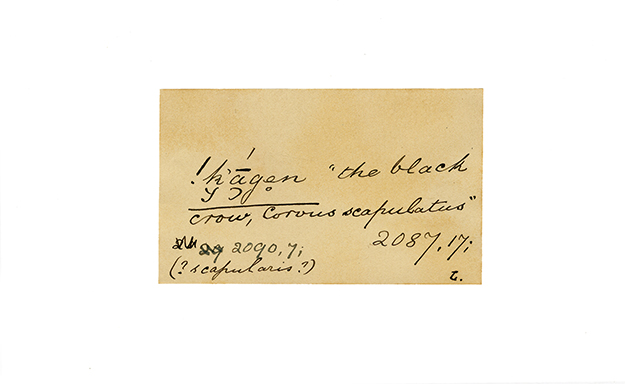 !k'āgen "the black
crow, Corvus scapulatus"
2090,7; 2087,17;
(? scapularis?)
L.